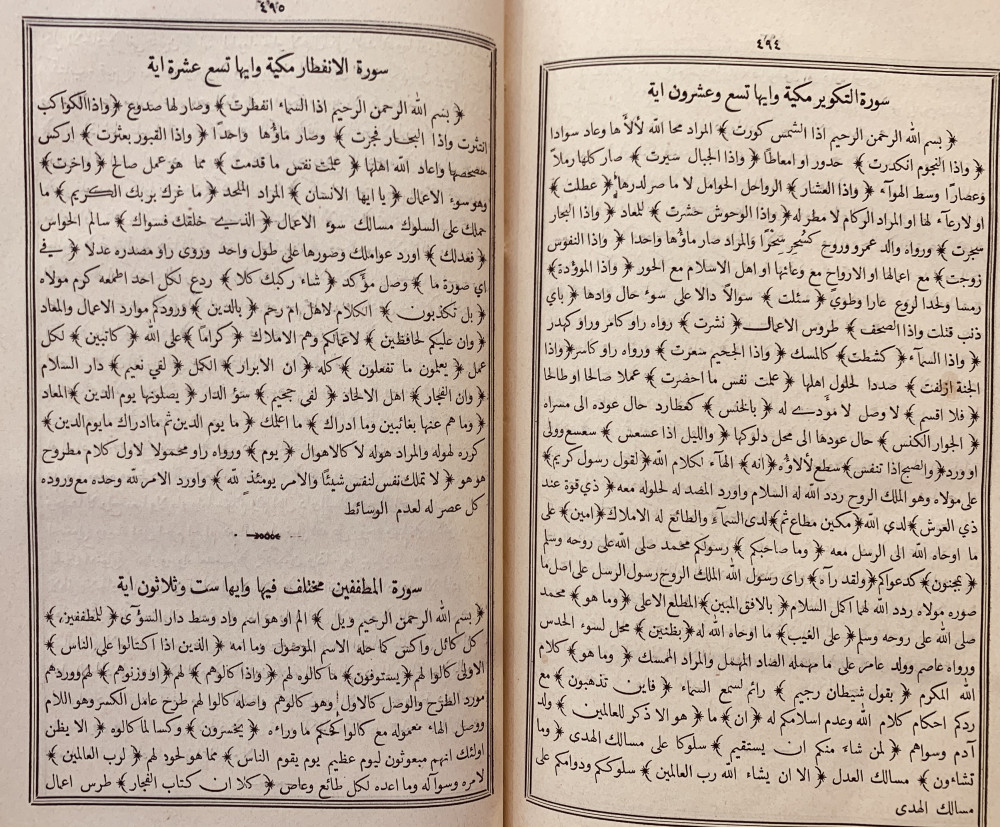 ٤٩٤
سورة التكوير مكية وايها تسع وعشرون اية
﴿ بسم الله الرحمن الرحيم اذا الشمس كورت ﴾ المراد محا الله لألأها وعاد سوادا
﴿ واذا النجوم انكدرت ﴾ حدور او امعاطا ﴿ واذا الجبال سيرت ﴾ صار كلها رملا
وعصارا وسط الهوآء ﴿ واذا العشار ﴾ الرواحل الحوامل لا ما صر لدرها ﴿ عطلت ﴾
او لا رعآء لها او المراد الركام لا مطر له ﴿ واذا الوحوش حشرت ﴾ للمعاد ﴿ واذا البحار
سجرت ﴾ ورواه والد عمرو وروح كسُجِر سَجْرًا والمراد صار ماؤها واحدا ﴿ واذا النفوس
زوجت ﴾ مع اعمالها او الارواح مع وعائها او اهل الاسلام مع الحور ﴿ واذا الموؤدة ﴾
رمسا ولحدا لروع عارا وطوىً ﴿ سئلت ﴾ سوالًا دالا على سوء حال وادها ﴿ باي
ذنب قتلت واذا الصحف ﴾ طروس الاعمال ﴿ نشرت ﴾ رواه راو كامر وراو كهدر
﴿ واذا السمآء ﴿ كشطت ﴾ كالمسك ﴿ واذا الجحيم سعرت ﴾ ورواه راو كاسر ﴿ واذا
الجنة ازلفت ﴾ صددا لحلول اهلها ﴿ علمت نفس ما احضرت ﴾ عملا صالحا او طالحا
﴿ فلا اقسم ﴾ لا وصل لا مؤدى له ﴿ بالخنس ﴾ كعطارد حال عوده الى مسراه
﴿ الجوار الكنس ﴾ حال عودها الى محل دلوكها ﴿ والليل اذا عسعس ﴾ سعسع وولى
او ورد ﴿ والصبح اذا تنفس ﴾ سطع لألاؤه ﴿ انه ﴾ الهآء لكلام الله ﴿ لقول رسول كريم ﴾
على مولاه وهو الملك الروح ردد الله له السلام واورد المصد له لحلوله معه ﴿ ذي قوة عند
ذي العرش ﴾ لدى الله ﴿ مكين مطاع ثم ﴾ لدى السمآء والطائع له الاملاك ﴿ امين ﴾ على
ما اوحاه الله الى الرسل معه ﴿ وما صاحبكم ﴾ رسولكم محمد صلى الله على روحه وسلم
﴿ بمجنون ﴾ كدعواكم ﴿ ولقد رآه ﴾ راى رسول الله الملك الروح رسول الرسل على اصل ما
صوره مولاه ردد الله لها اكمل السلام ﴿ بالافق المبين ﴾ المطلع الاعلى ﴿ وما هو ﴾ محمد
صلى الله على روحه وسلم ﴿ على الغيب ﴾ ما اوحاه الله له ﴿ بظنين ﴾ محل لسوء الحدس
ورواه عاصم وولد عامر على ما مهمله الضاد المهمل والمراد الممسك ﴿ وما هو ﴾ كلام
الله المكرم ﴿ بقول شيطان رجيم ﴾ رائم لسمع السماء ﴿ فاين تذهبون ﴾ مع
ردكم احكام كلام الله وعدم اسلامكم له ﴿ ان ﴾ ما ﴿ هو الا ذكر للعالمين ﴾ ولد
آدم وسواهم ﴿ لمن شاء منكم ان يستقيم ﴾ سلوكا على مسالك الهدى ﴿ وما
تشاءون ﴾ مسالك العدل ﴿ الا ان يشاء الله رب العالمين ﴾ سلوككم ودوامكم على
مسالك الهدى
٤٩٥
سورة الانفطار مكية وايها تسع عشرة اية
﴿ بسم الله الرحمن الرحيم اذا السماء انفطرت ﴾ وصار لها صدوع ﴿ واذا الكواكب
انتثرت واذا البحار فجرت ﴾ وصار ماؤها واحدًا ﴿ واذا القبور بعثرت ﴾ اركس
حصحصها واعاد الله اهلها ﴿ علمت نفس ما قدمت ﴾ مما هو عمل صالح ﴿ واخرت ﴾
وهو سوء الاعمال ﴿ يا ايها الانسان ﴾ المراد الملحد ﴿ ما غرك بربك الكريم ﴾ ما
حملك على السلوك مسالك سوء الاعمال ﴿ الذي خلقك فسواك ﴾ سالم الحواس
﴿ فعدلك ﴾ اورد عواملك وصورها على طول واحد وروى راو مصدره عدلا ﴿ في
اي صورة ما ﴾ وصل مؤكد ﴿ شاء ركبك كلا ﴾ ردع لكل احد اطمعه كرم مولاه
﴿ بل تكذبون ﴾ الكلام لاهل ام رحم ﴿ بالدين ﴾ ورودكم موارد الاعمال والمعاد
﴿ وان عليكم لحافظين ﴾ لاعمالكم وهم الاملاك ﴿ كراما ﴾ على الله ﴿ كاتبين ﴾ لكل
عمل ﴿ يعلمون ما تفعلون ﴾ كله ﴿ ان الابرار ﴾ الكمل ﴿ لفي نعيم ﴾ دار السلام
﴿ وان الفجار ﴾ اهل الالحاد ﴿ لفي جحيم ﴾ سوء الدار ﴿ يصلونها يوم الدين ﴾ المعاد
﴿ وما هم عنها بغائبين وما ادراك ﴾ ما اعلمك ﴿ ما يوم الدين ثم ما ادراك ما يوم الدين ﴾
كرره لهوله والمراد هوله لا كالاهوال ﴿ يوم ﴾ ورواه راو محمولا لاول كلام مطروح
هو هو ﴿ لا تملك نفس لنفس شيئًا والامر يومئذ لله ﴾ واورد الامر لله وحده مع وروده
كل عصر له لعدم الوسائط
سورة المطففين مختلف فيها وايها ست وثلاثون اية
﴿ بسم الله الرحمن الرحيم ويل ﴾ الم او هو اسم واد وسط دار السوٓآى ﴿ للمطففين ﴾
كل كائل واكس كما حله الاسم الموصول وما امه ﴿ الذين اذا اكتالوا على الناس ﴾
الاولى كالوا لهم ﴿ يستوفون ﴾ ما كالوه لهم ﴿ واذا كالوهم ﴾ لهم ﴿ او وزنوهم ﴾ لهم ووردهم
مورد الطرح والوصل كالاول وهو كالوهم واصله كالوا لهم طرح عامل الكسر وهو اللام
ووصل الهاء معموله مع كالوا كحكم ما وراءه ﴿ يخسرون ﴾ وكسا لما كالوه ﴿ الا يظن
اولئك انهم مبعوثون ليوم عظيم يوم يقوم الناس ﴾ مما هو لحود لهم ﴿ لرب العالمين ﴾
لامره وسوآله وما اعده لكل طائع وعاص ﴿ كلا ان كتاب الفجار ﴾ طرس اعمال